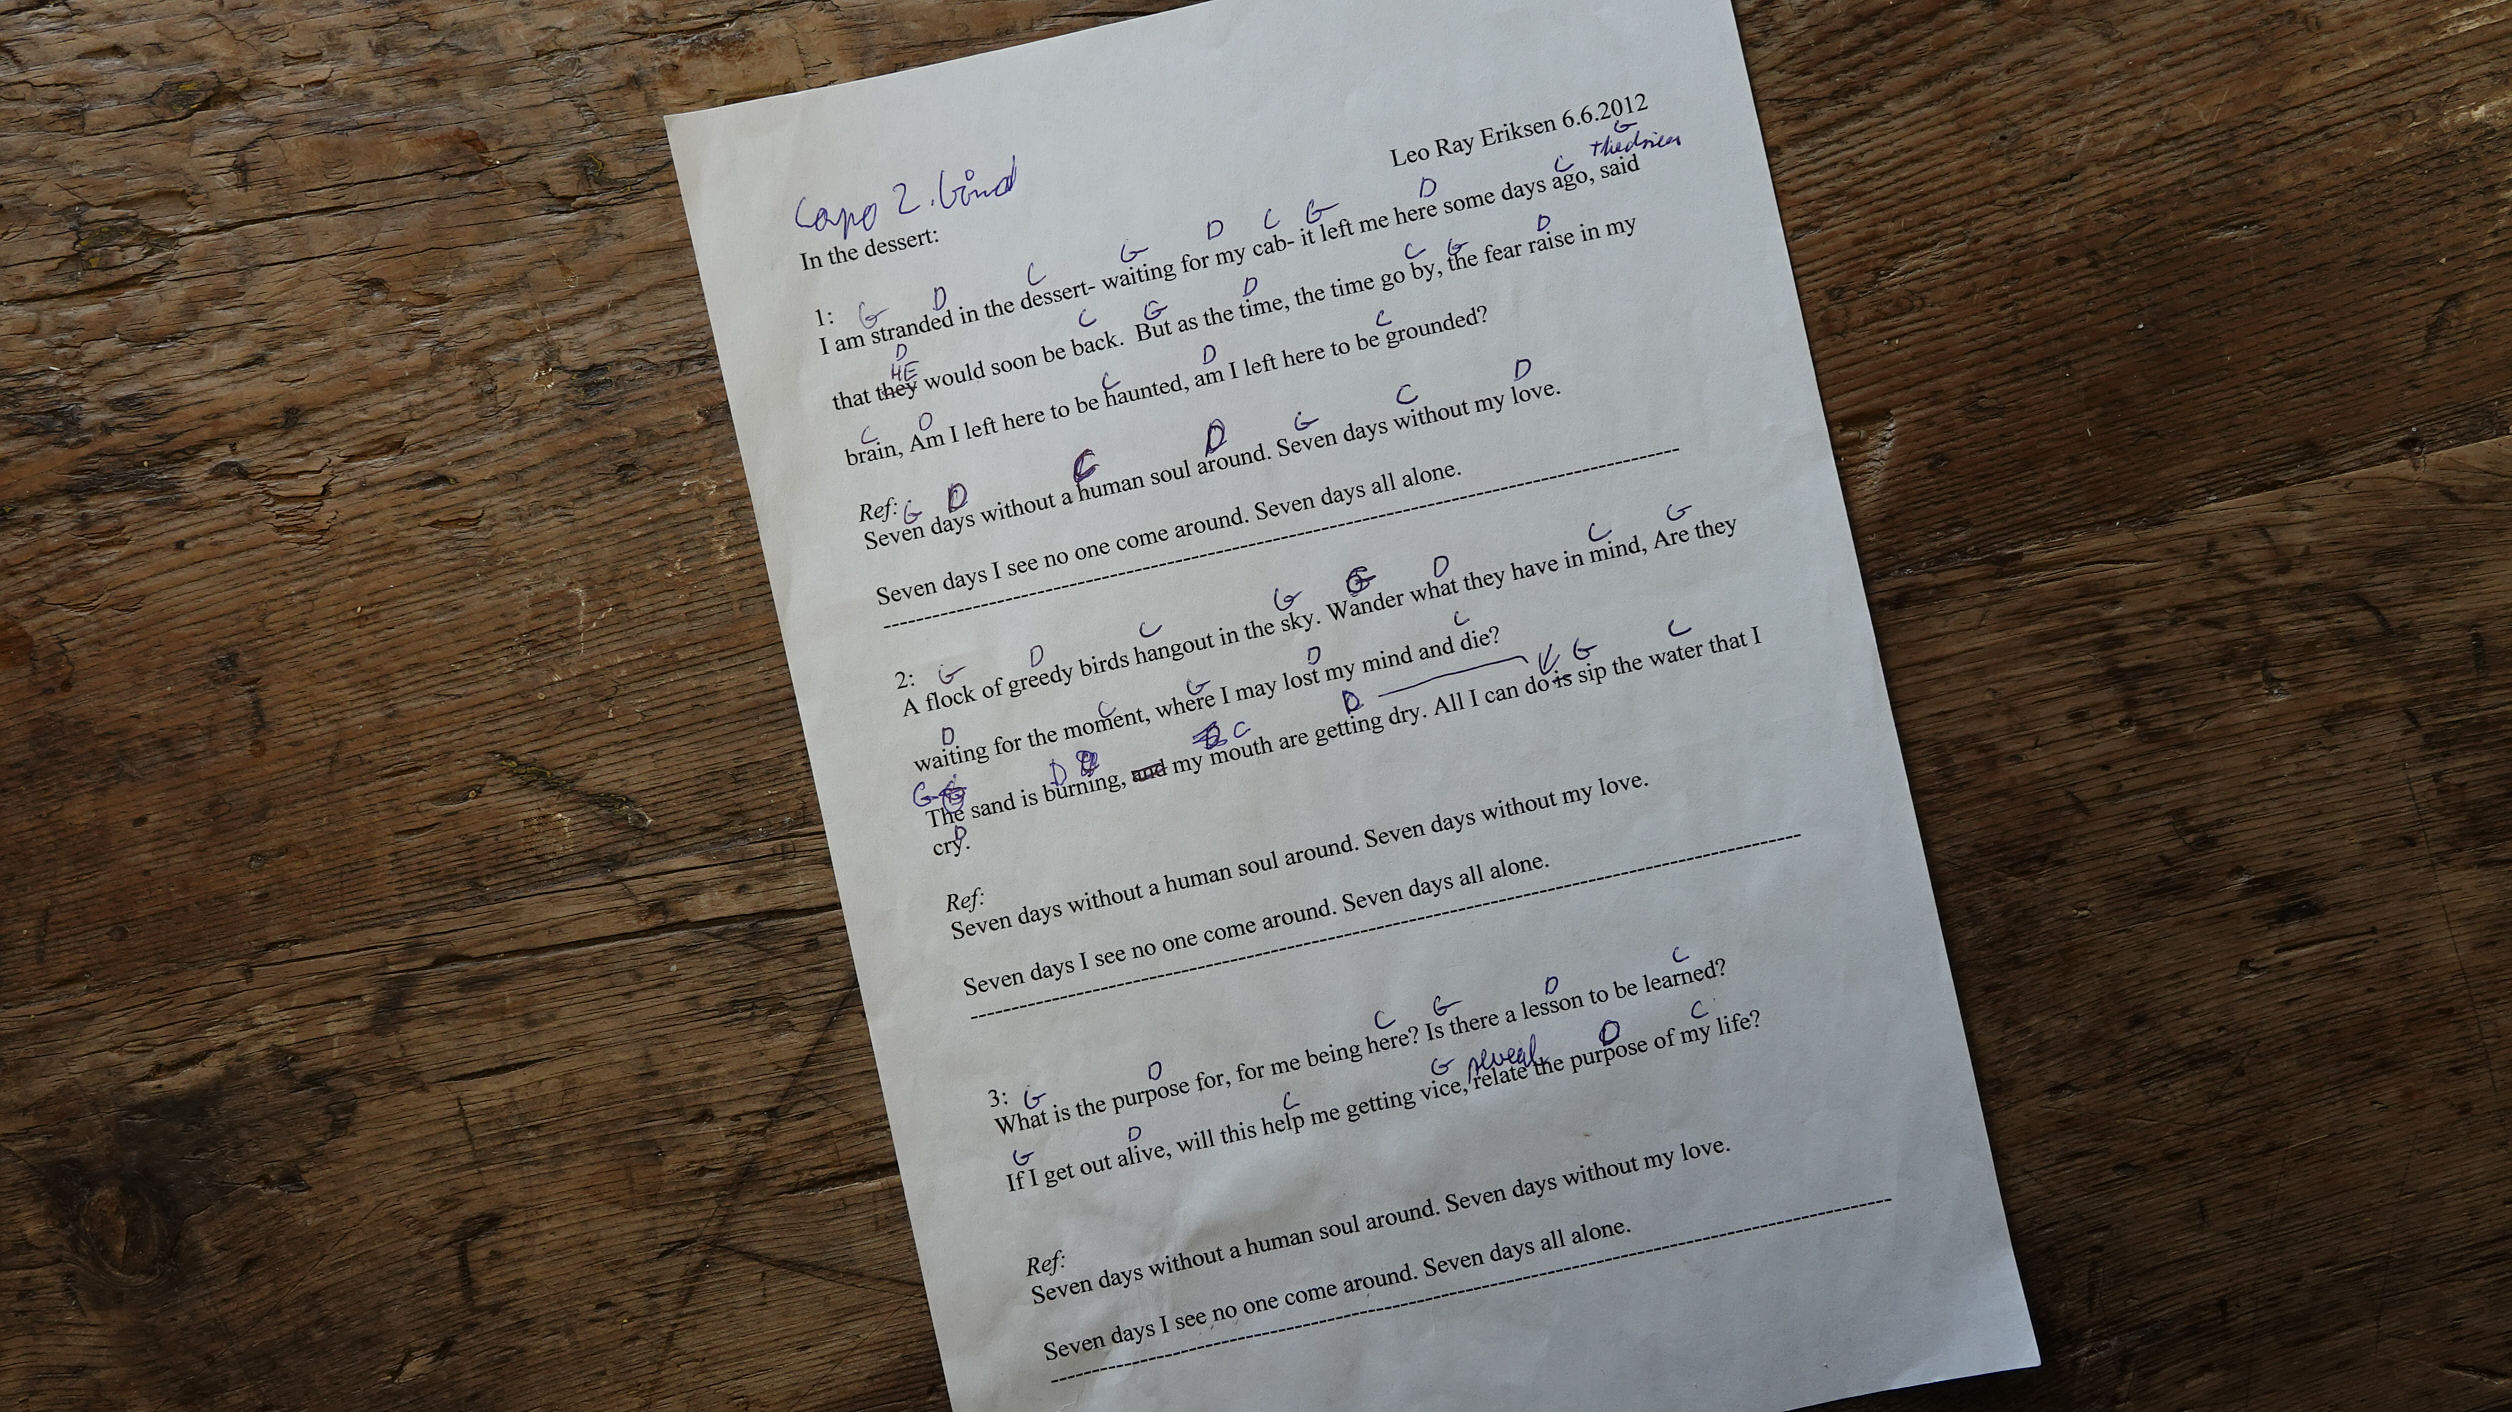 Leo Ray Eriksen 6.6.2012
Capo 2. bånd
In the dessert:
G
the driver
1: G D C G D C G D C
I am stranded in the dessert- waiting for my cab- it left me here some days ago, said
D HE C G D C G D
that they would soon be back. But as the time, the time go by, the fear raise in my
C D C D C
brain, Am I left here to be haunted, am I left here to be grounded?
Ref: G D C D G C D
Seven days without a human soul around. Seven days without my love.
Seven days I see no one come around. Seven days all alone.
2: G D C G G D C G
A flock of greedy birds hangout in the sky. Wander what they have in mind, Are they
D C G D C
waiting for the moment, where I may lost my mind and die?
G D C D G C
The sand is burning, and my mouth are getting dry. All I can do is sip the water that I
D
cry.
Ref:
Seven days without a human soul around. Seven days without my love.
Seven days I see no one come around. Seven days all alone.
3: G D C G D C
What is the purpose for, for me being here? Is there a lesson to be learned?
G D C G reveal D C
If I get out alive, will this help me getting vice, relate the purpose of my life?
Ref:
Seven days without a human soul around. Seven days without my love.
Seven days I see no one come around. Seven days all alone.